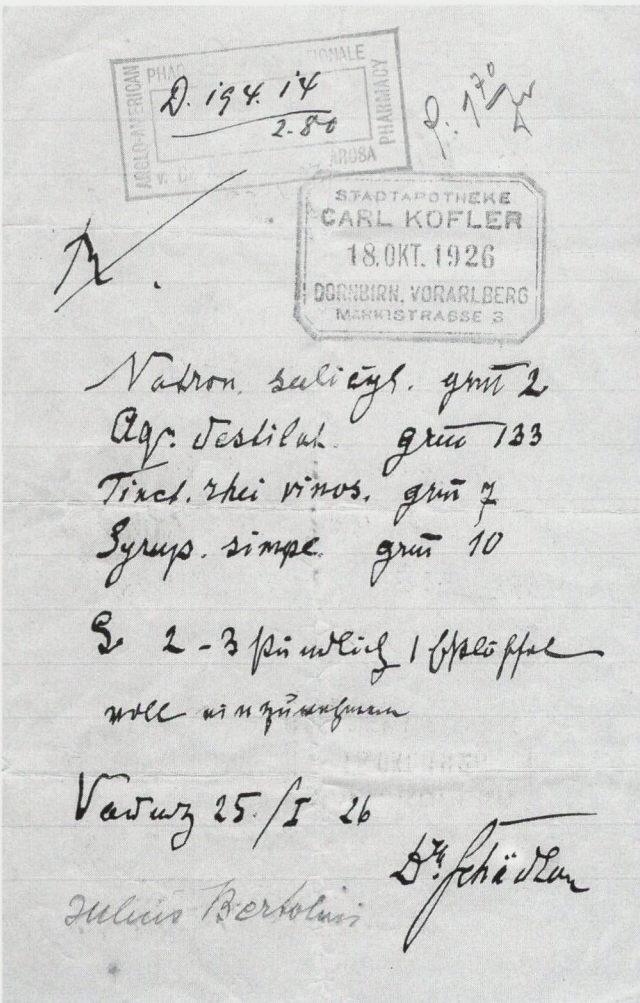 ANGLO-AMERICAN PHARMACY
AROSA
D. 194. 14
2.80
STADTAPOTHEKE
CARL KOFLER
18. OKT. 1926
DORNBIRN, VORARLBERG
MARKTSTRASSE 3
Natron. salicyl. grm 2
Aq. destilat. grm 133
Tinct. rhei vinos. grm 7
Syrup. simpl. grm 10
S. 2-3 stündlich 1 Esslöffel
voll einzunehmen
Vaduz 25./I 26
Dr. Schädler
Julius Bertolini